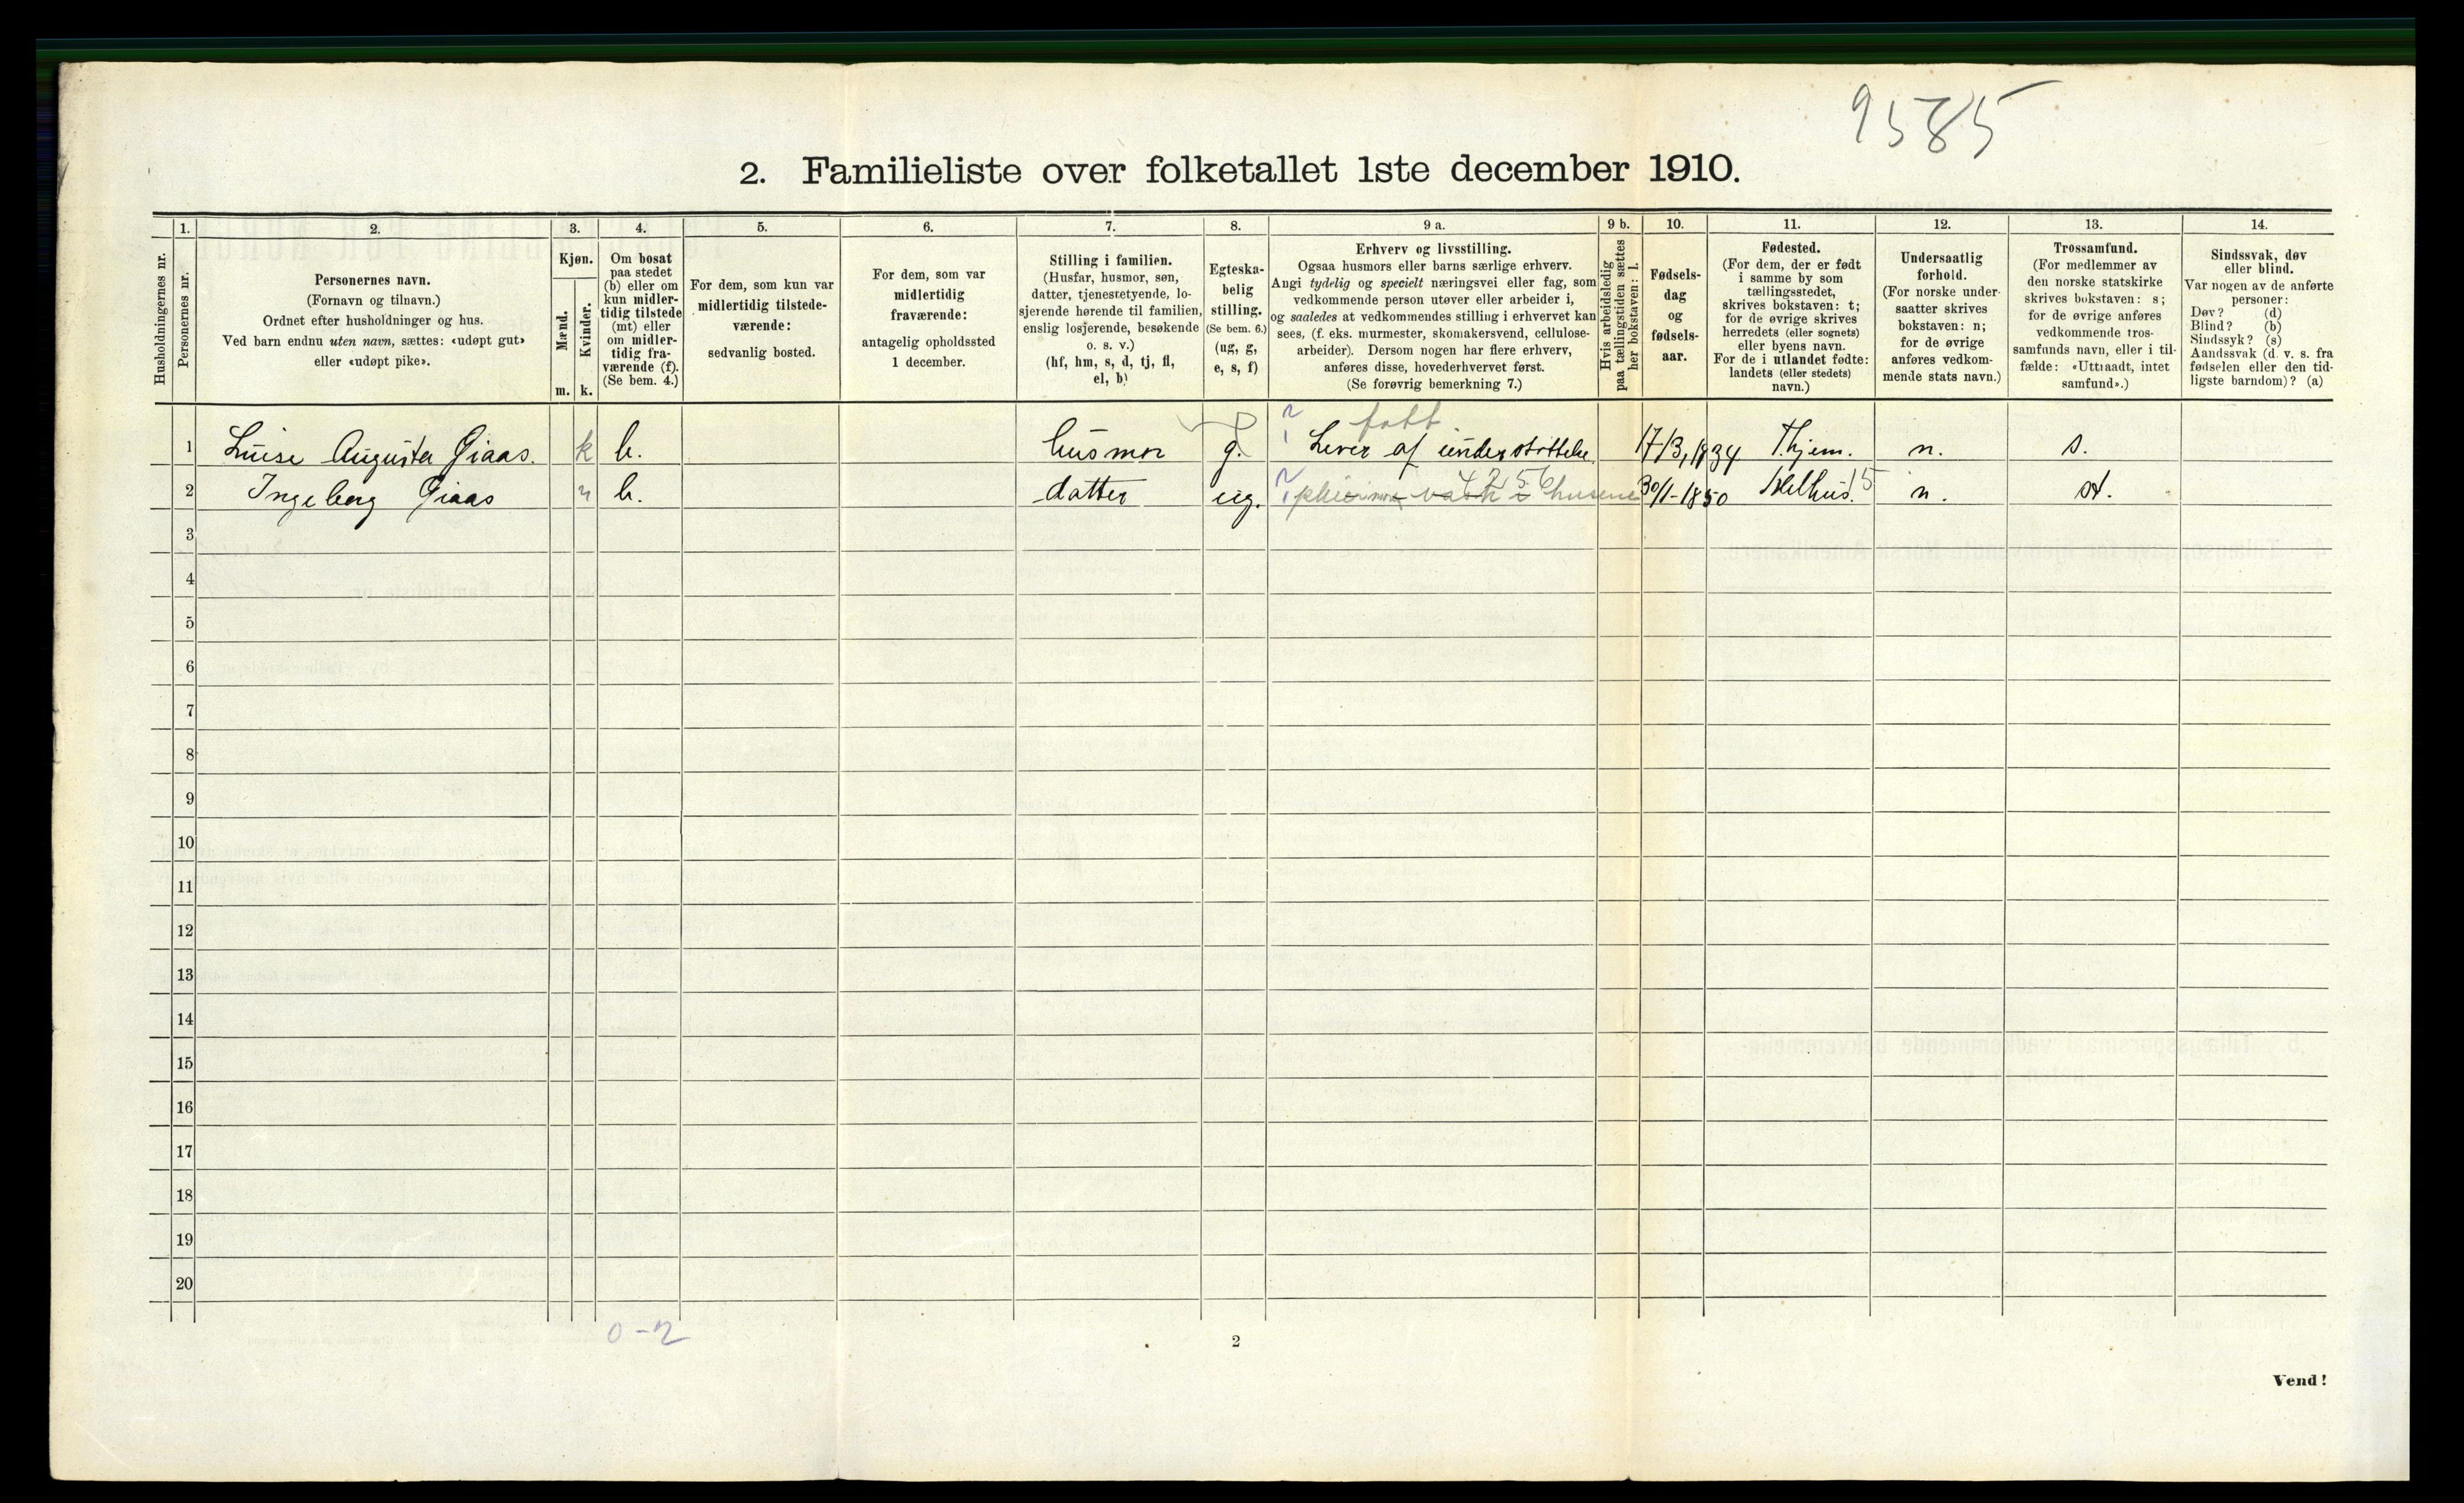 9585
2. Familieliste over folketallet 1ste december 1910.
1. 2. 3. 4. 5. 6. 7. 8. 9 a. 9 b. 10. 11. 12. 13. 14.
Husholdningernes nr.
Personernes nr.
Personernes navn.
(Fornavn og tilnavn.)
Ordnet efter husholdninger og hus.
Ved barn endnu uten navn, sættes: «udøpt gut»
eller «udøpt pike».
Kjøn.
Mænd.
m.
Kvinder.
k.
Om bosat
paa stedet
(b) eller om
kun midler-
tidig tilstede
(mt) eller
om midler-
tidig fra-
værende (f).
(Se bem. 4.)
For dem, som kun var
midlertidig tilstede-
værende:
sedvanlig bosted.
For dem, som var
midlertidig
fraværende:
antagelig opholdssted
1 december.
Stilling i familien.
(Husfar, husmor, søn,
datter, tjenestetyende, lo-
sjerende hørende til familien,
enslig losjerende, besøkende
o. s. v.)
(hf, hm, s, d, tj, fl,
el, b)
Egteska-
belig
stilling.
(Se bem. 6.)
(ug, g,
e, s, f)
Erhverv og livsstilling.
Ogsaa husmors eller barns særlige erhverv.
Angi tydelig og specielt næringsvei eller fag, som
vedkommende person utøver eller arbeider i,
og saaledes at vedkommendes stilling i erhvervet kan
sees, (f. eks. murmester, skomakersvend, cellulose-
arbeider). Dersom nogen har flere erhverv,
anføres disse, hovederhvervet først.
(Se forøvrig bemerkning 7.)
Hvis arbeidsledig
paa tællingstiden sættes
her bokstaven: l.
Fødsels-
dag
og
fødsels-
aar.
Fødested.
(For dem, der er født
i samme by som
tællingsstedet,
skrives bokstaven: t;
for de øvrige skrives
herredets (eller sognets)
eller byens navn.
For de i utlandet fødte:
landets (eller stedets)
navn.)
Undersaatlig
forhold.
(For norske under-
saatter skrives
bokstaven: n;
for de øvrige
anføres vedkom-
mende stats navn.)
Trossamfund.
(For medlemmer av
den norske statskirke
skrives bokstaven: s;
for de øvrige anføres
vedkommende tros-
samfunds navn, eller i til-
fælde: «Uttraadt, intet
samfund».)
Sindssvak, døv
eller blind.
Var nogen av de anførte
personer:
Døv? (d)
Blind? (b)
Sindssyk? (s)
Aandssvak (d. v. s. fra
fødselen eller den tid-
ligste barndom)? (a)
1 Luise Augusta Giaas. k b. husmor g. Lever af understøttelse 17/3, 1834 Thjem. n. s.
2 Ingeborg Giaas b. datter ug. 4256 husene 30/1-1850 Melhus. 15 n. st.
3
4
5
6
7
8
9
10
11
12
13
14
15
16
17
18
19
20
0-2
2
Vend!